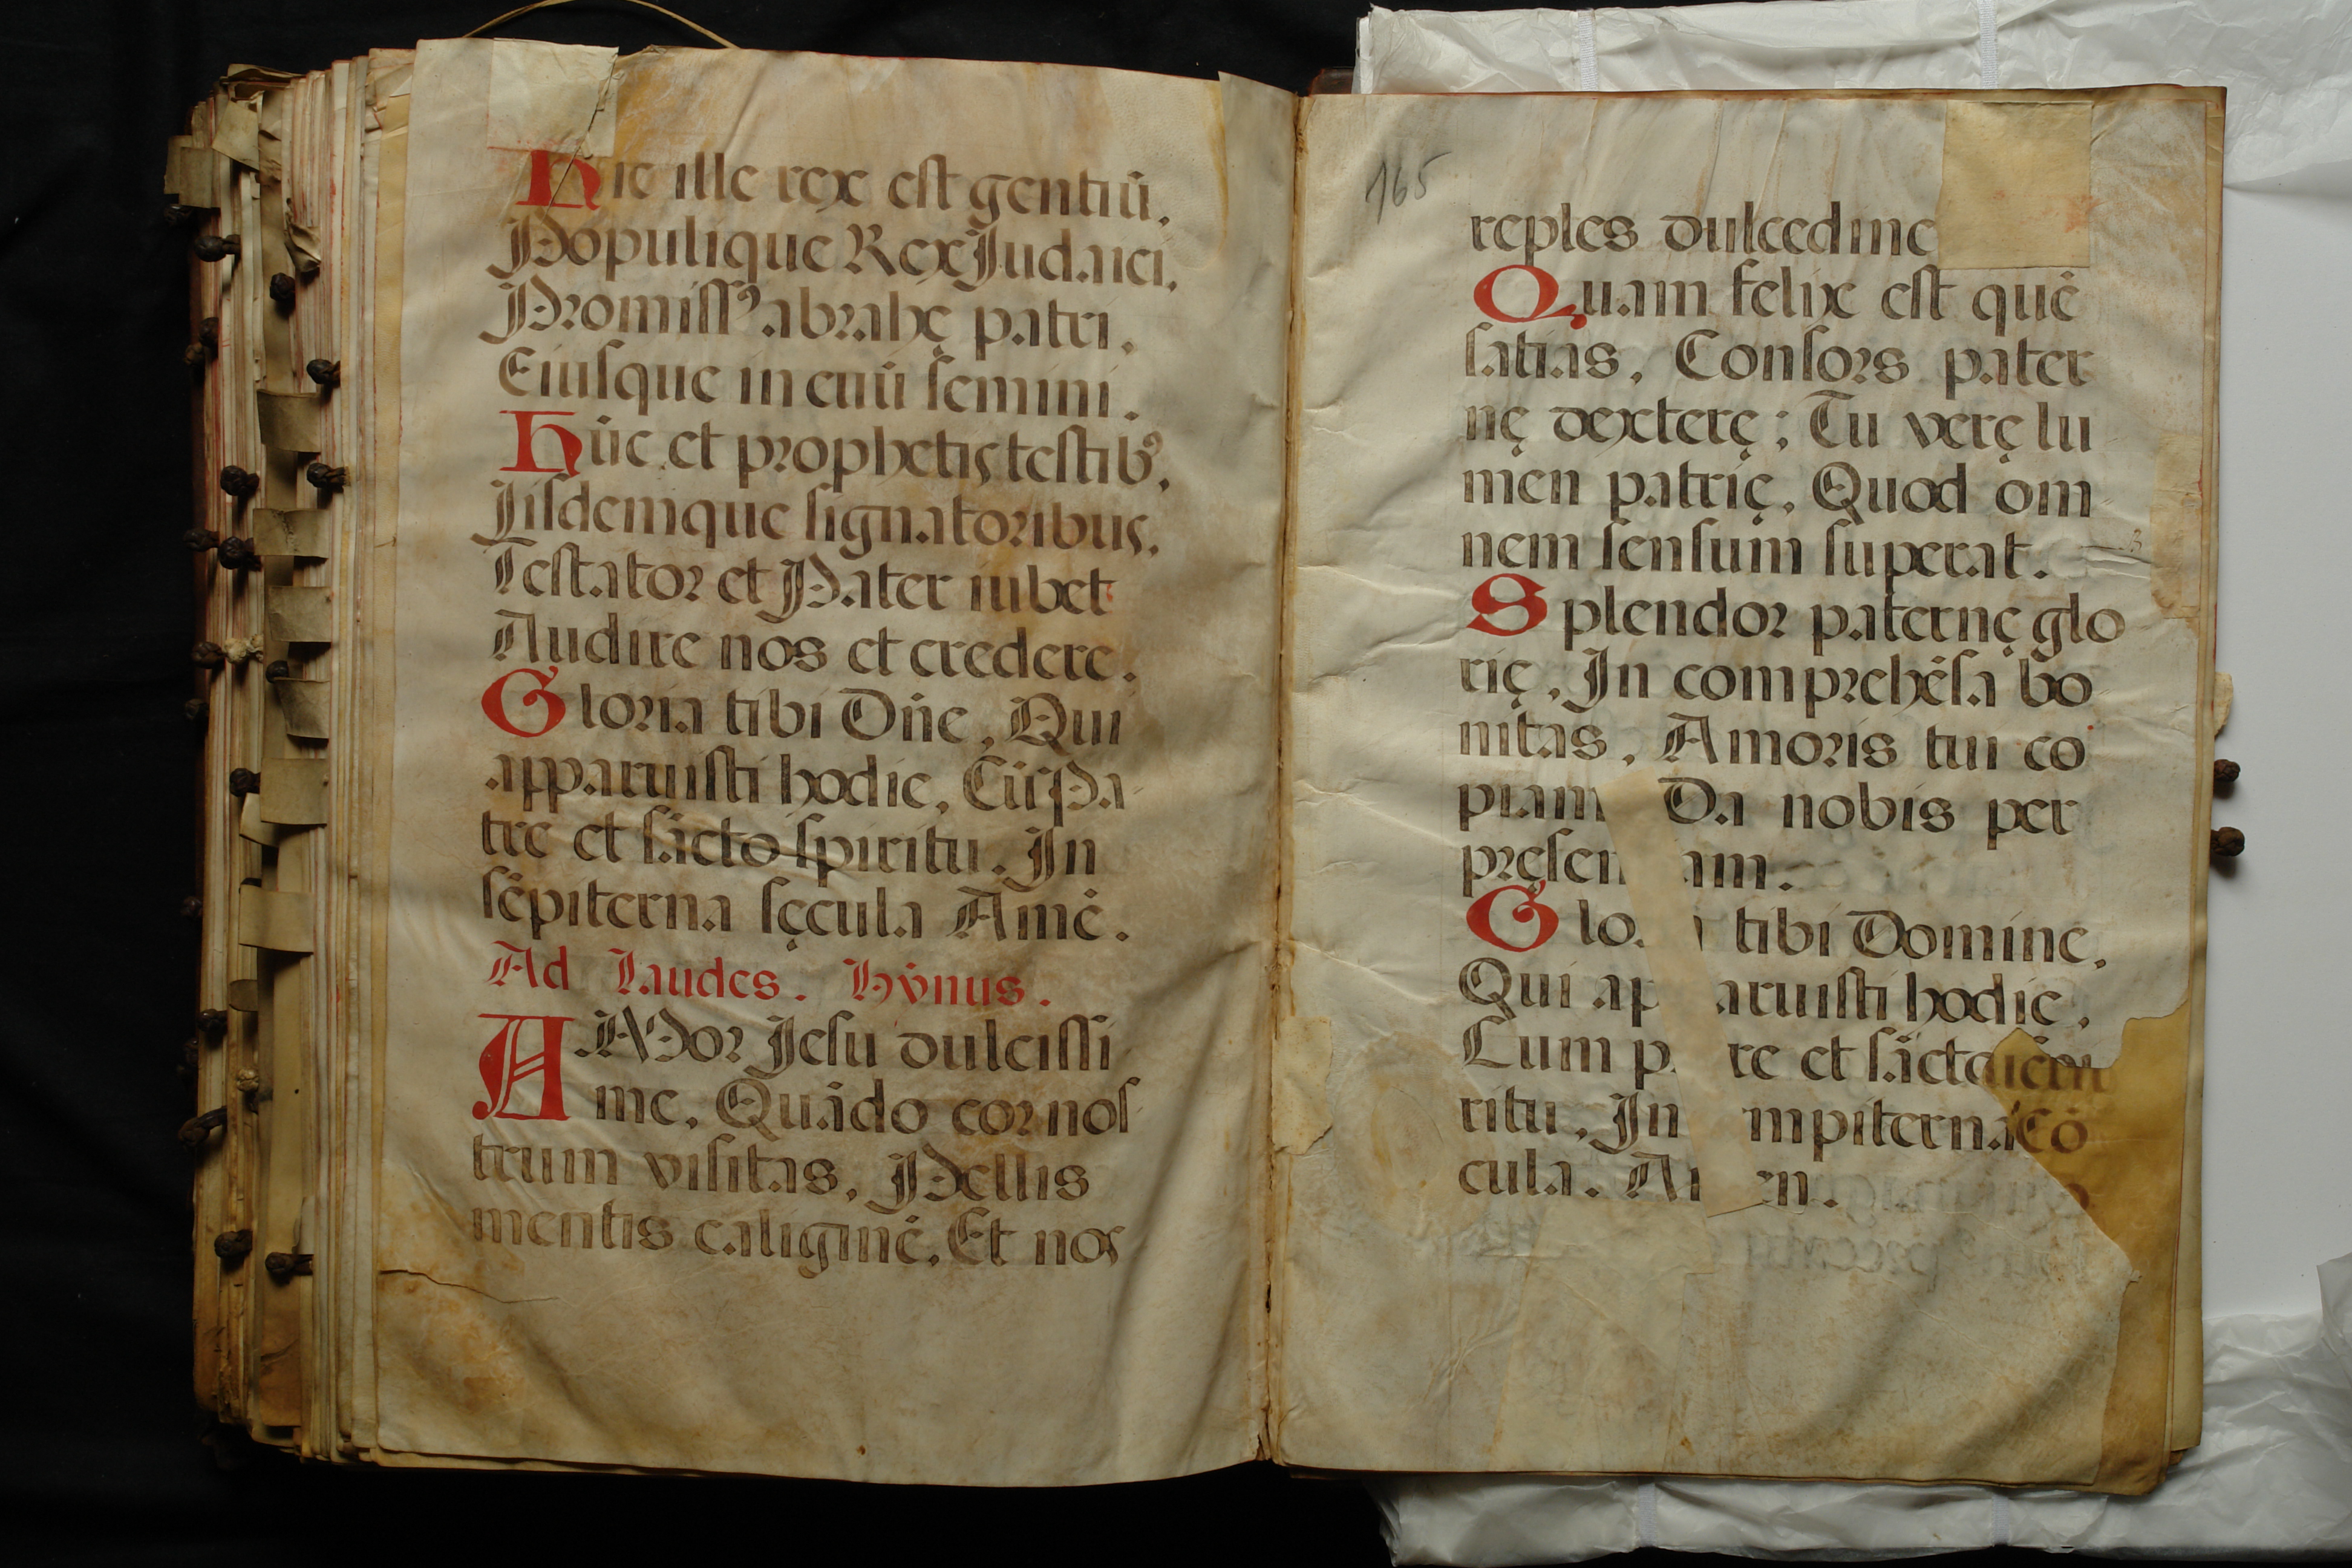 Hic ille rex est gentiū.
Populique Rex Judaici,
Promissꝰ abrahę patri,
Eiusque in evū semini.
Hūc et prophetis testibꝰ,
Iisdemque signatoribus,
Testator et Pater iubet
Audire nos et credere.
Gloria tibi Dñe, Qui
apparuisti hodie, Cū Pa
tre et sācto spiritu. In
sēpiterna sęcula Amē.
Ad Laudes. Hȳnus.
AMor Jesu dulcissi
me, Quādo cor nos
trum visitas, Pellis
mentis caliginē, Et nos
165
reples dulcedine
Quam felix est quē
satias, Consors pater
nę dexterę; Tu verę lu
men patrię, Quod om
nem sensum superat.
Splendor paternę glo
rię, In comprehēsa bo
nitas, Amoris tui co
piam Da nobis per
pręsen am.
Glo tibi Domine,
Qui ap aruisti hodie,
Cum p re et sācto
ritu, In mpiterna
cula. A en.